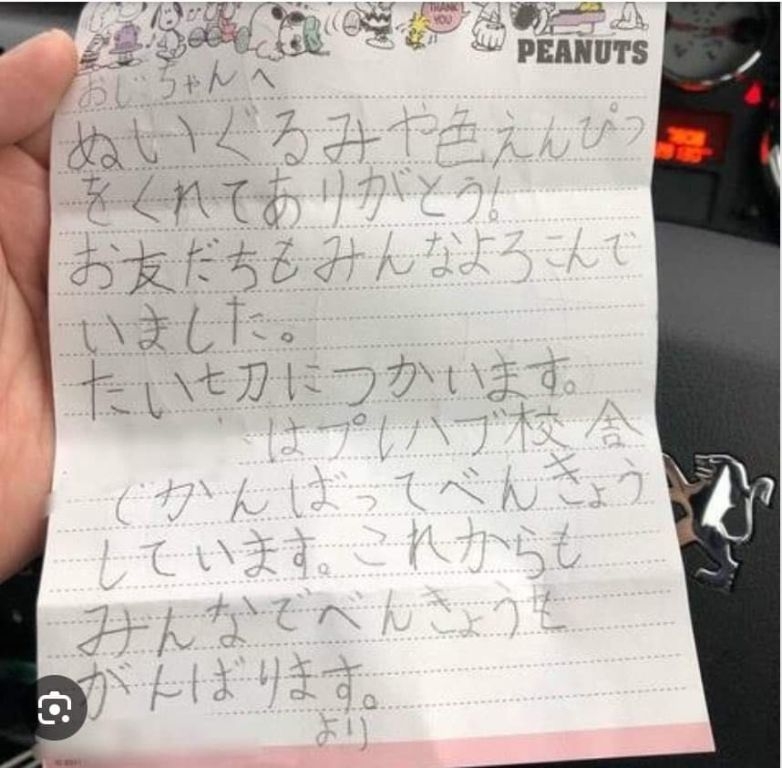 THANK YOU
PEANUTS
おじちゃんへ
ぬいぐるみや色えんぴつ
をくれてありがとう!
お友だちもみんなよろこんで
いました。
たい切につかいます。
はプレハブ校舎
でがんばってべんきょう
しています。これからも
みんなでべんきょうも
がんばります。
より